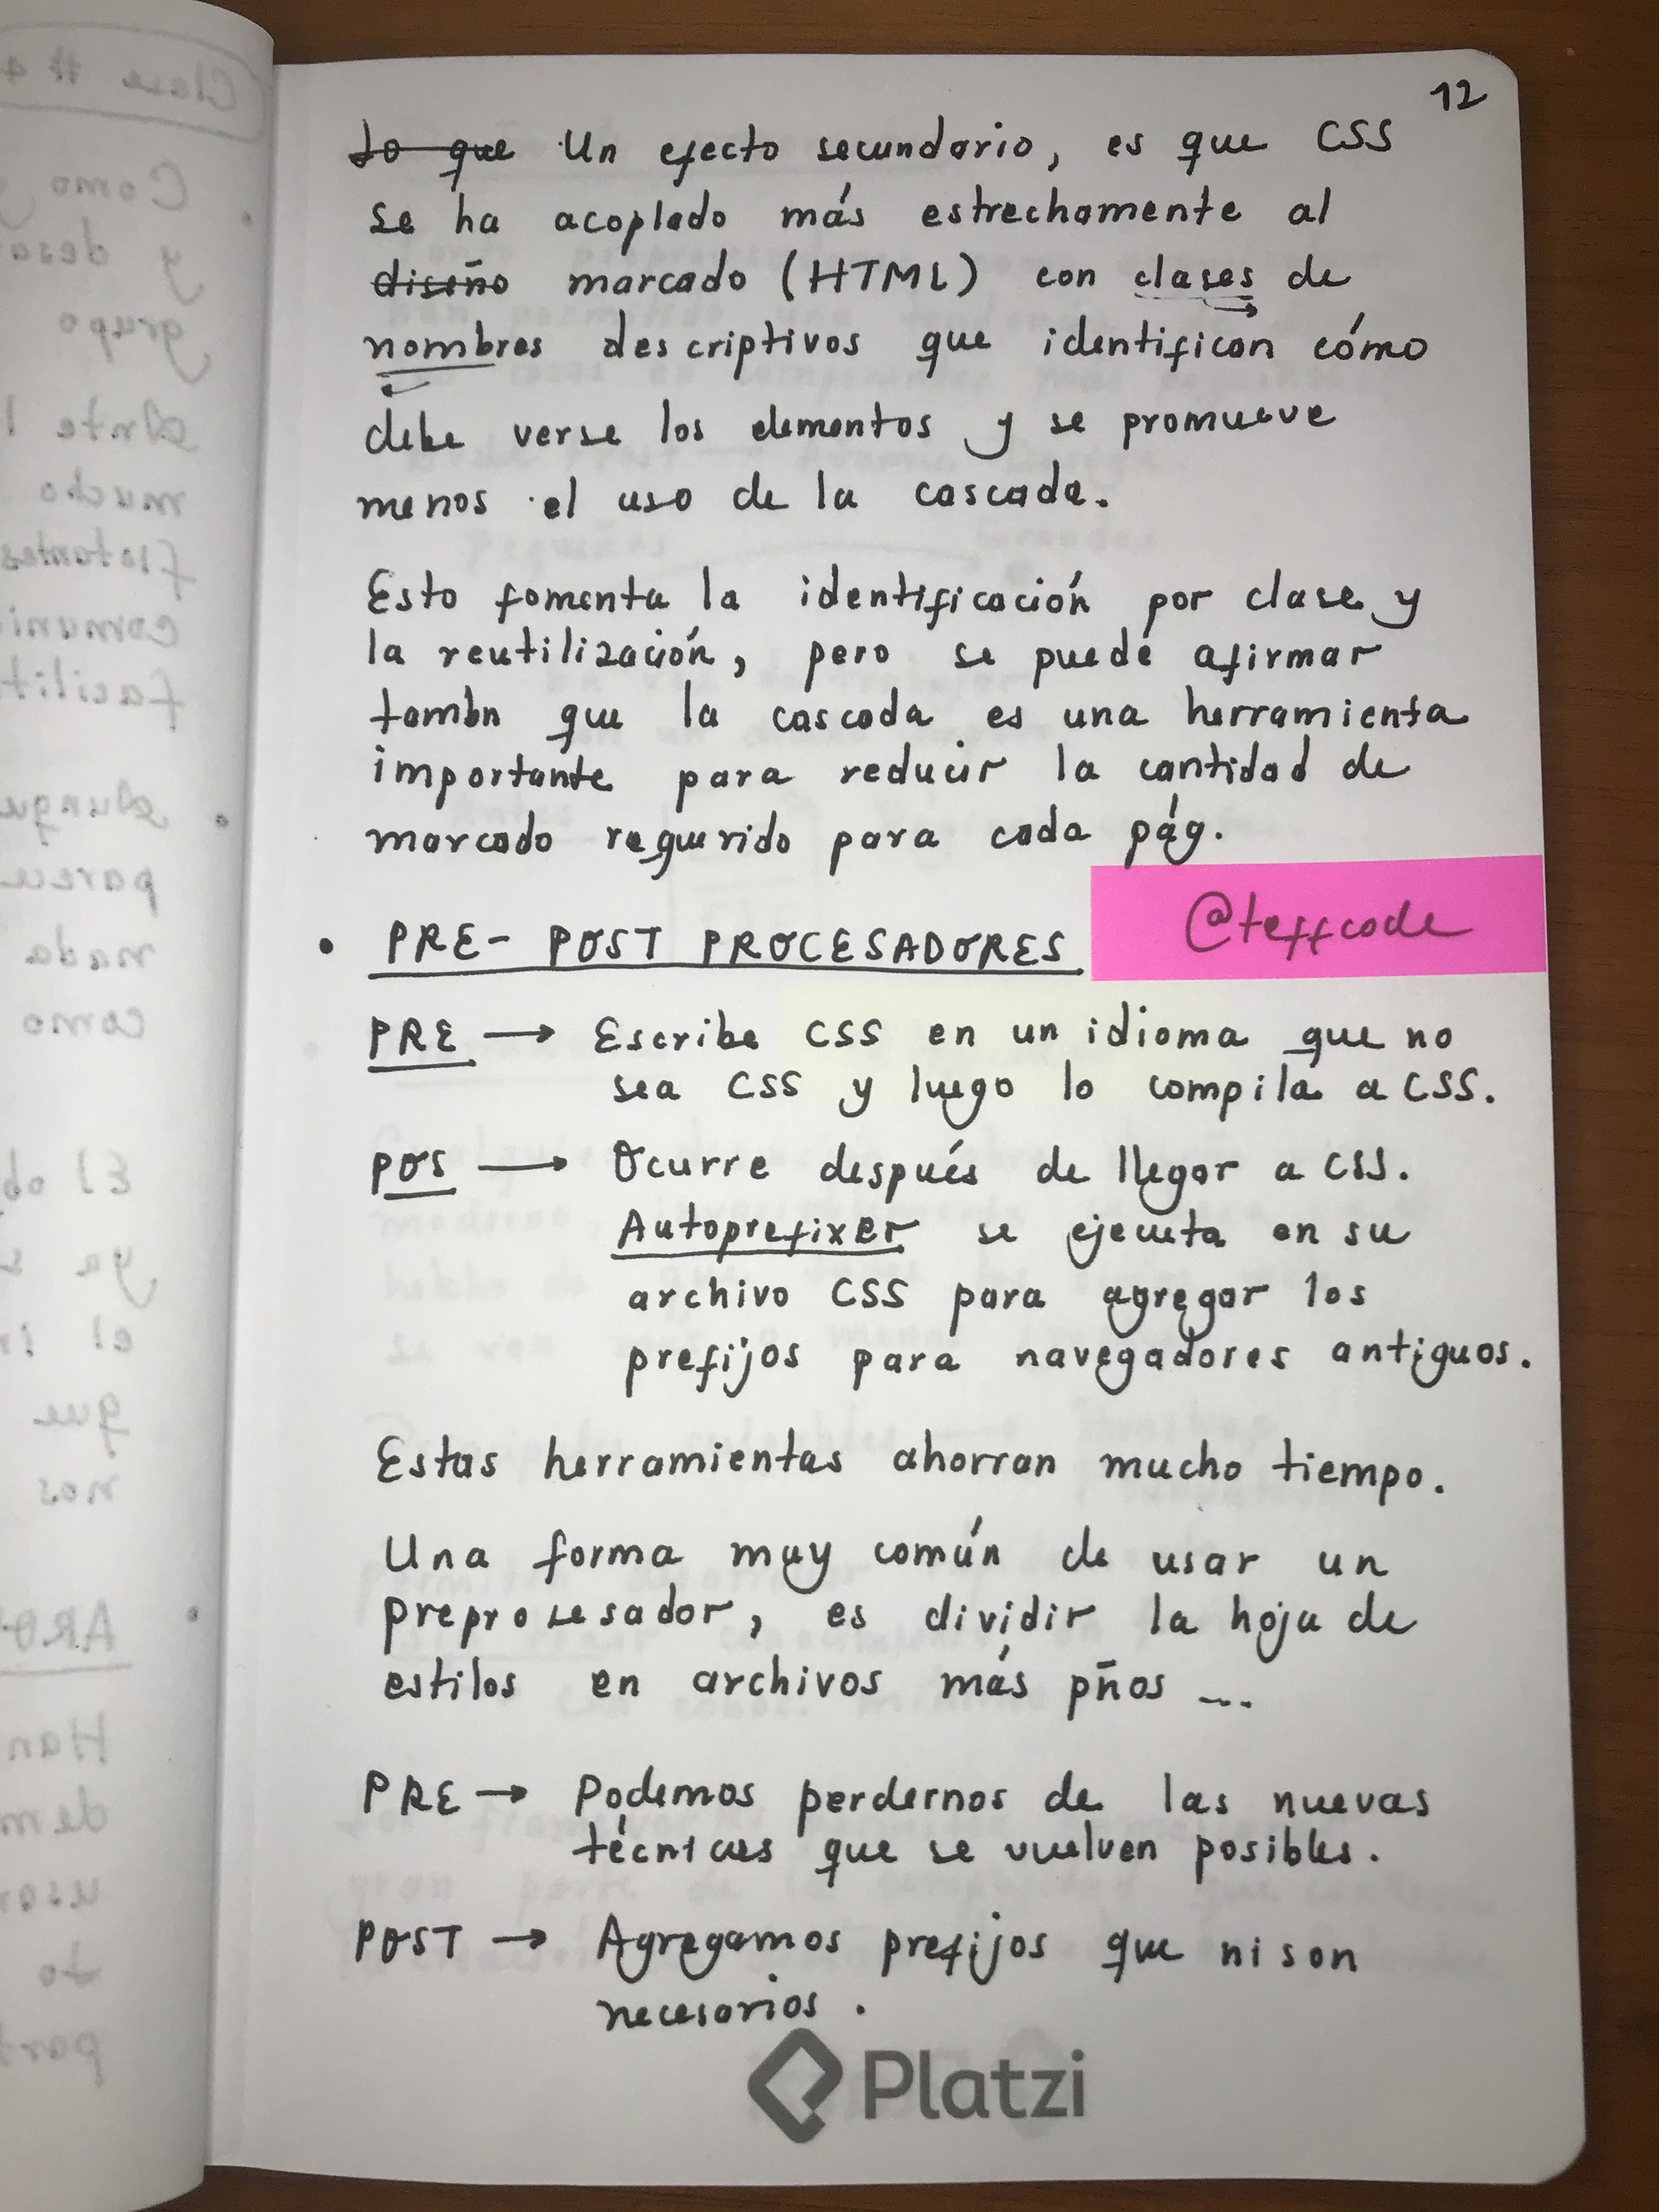 12
~~Lo que~~ Un efecto secundario, es que CSS
se ha acoplado más estrechamente al
~~diseño~~ marcado (HTML) con clases de
nombres descriptivos que identifican cómo
debe verse los elementos y se promueve
menos el uso de la cascada.
Esto fomenta la identificación por clase y
la reutilización, pero se puede afirmar
tambn que la cascada es una herramienta
importante para reducir la cantidad de
marcado requerido para cada pág.
• PRE- POST PROCESADORES
@teffcode
PRE → Escribe CSS en un idioma que no
sea CSS y luego lo compila a CSS.
POS → Ocurre después de llegar a CSS.
Autoprefixer se ejecuta en su
archivo CSS para agregar los
prefijos para navegadores antiguos.
Estas herramientas ahorran mucho tiempo.
Una forma muy común de usar un
preprosesador, es dividir la hoja de
estilos en archivos más pños ...
PRE → Podemos perdernos de las nuevas
técnicas que se vuelven posibles.
POST → Agregamos prefijos que ni son
necesarios.
Platzi